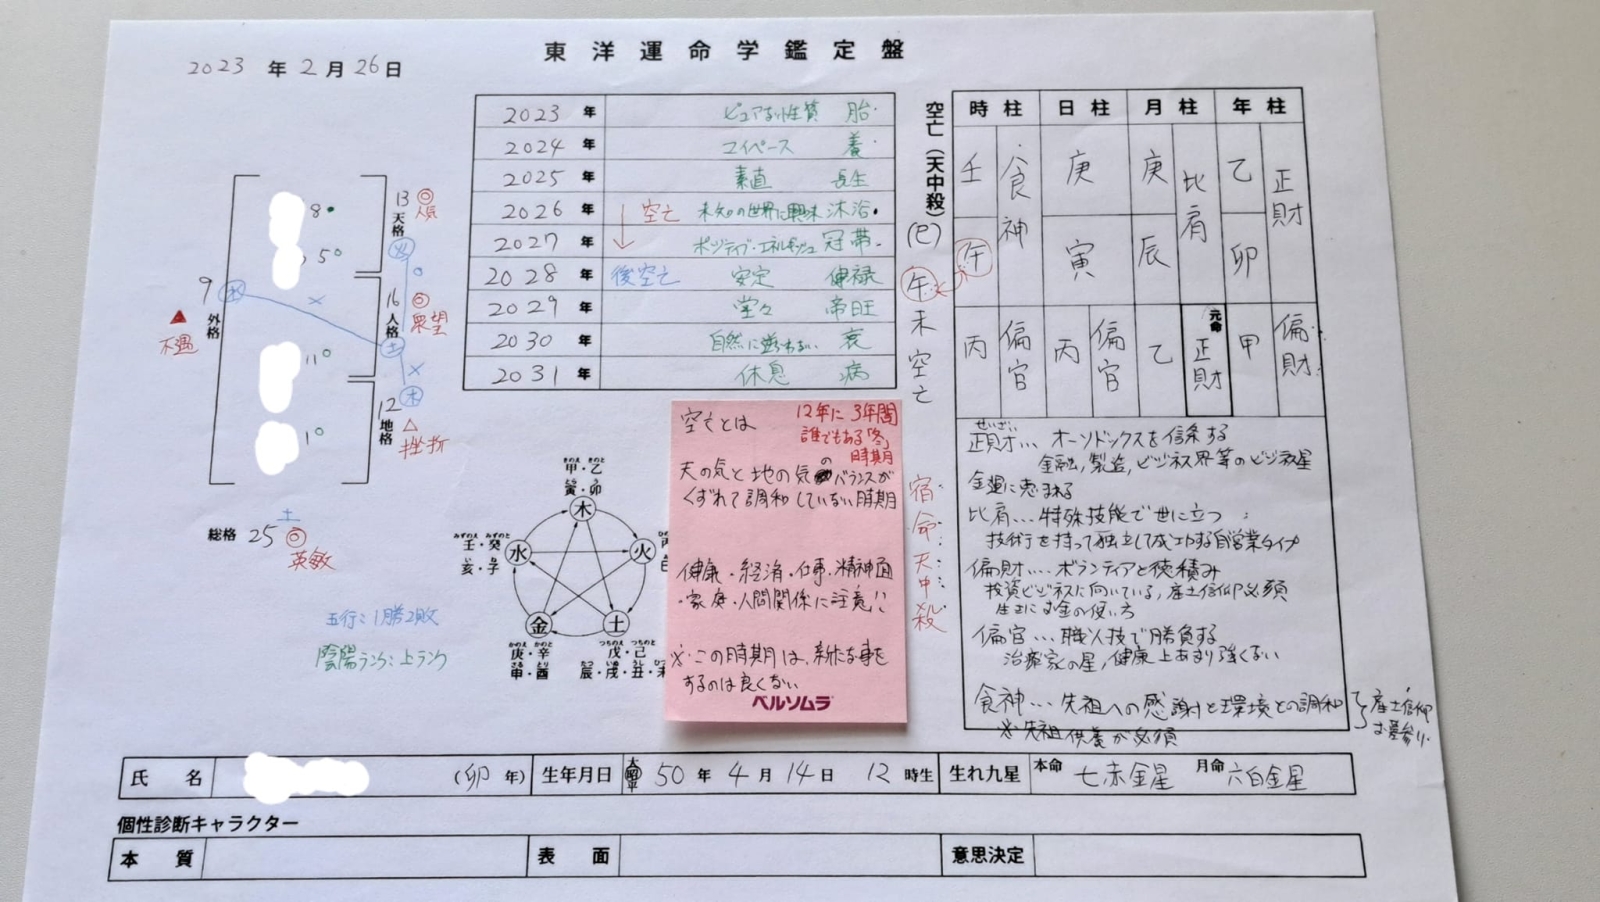 東洋運命学鑑定盤
2023 年 2 月 26 日
13 ◎
天格 人気
火
8
5
9
外格
水
▲
不遇
16
人格
◎
衆望
土
11
1
12
地格
木
△
挫折
土
総格 25 ◎
英敏
五行:1勝2敗
陰陽ランク:上ランク
2023 年 ピュアな性質 胎
2024 年 マイペース 養
2025 年 素直 長生
2026 年 空亡 未知の世界に興味 沐浴
2027 年 ポジティブ・エネルギッシュ 冠帯
2028 年 後空亡 安定 健禄
2029 年 堂々 帝旺
2030 年 自然に逆らわない 衰
2031 年 休息 病
空亡(天中殺)
(巳)
午未空亡
宿命天中殺
時柱 日柱 月柱 年柱
壬 食神 庚 庚 比肩 乙 正財
午 寅 辰 卯
丙 偏官 丙 偏官 乙 元命 正財 甲 偏財
せいざい
正財… オーソドックスを信条する
金融,製造,ビジネス界等のビジネス星
金運に恵まれる
比肩… 特殊技能で世に立つ
技術を持って独立して成功する自営業タイプ
偏財… ボランティアと徳積み
投資ビジネスに向いている,産土信仰必須
生きたお金の使い方
偏官… 職人技で勝負する
治療家の星,健康上あまり強くない
食神… 先祖への感謝と環境との調和
※先祖供養が必須
産土信仰
お墓参り
きのえ きのと
甲・乙
とら う
寅・卯
木
みずのえ みずのと
壬・癸
い ね
亥・子
水
火
金
かのえ かのと
庚・辛
さる とり
申・酉
土
つちのえ つちのと
戊・己
たつ いぬ うし
辰・戌・丑・
空亡とは
12年に3年間
誰でもある「冬」
の時期
天の気と地の気のバランスが
くずれて調和していない時期
健康・経済・仕事・精神面
・家庭・人間関係に注意!!
※・この時期は、新たな事を
するのは良くない
ベルソムラ
氏名 (卯年) 生年月日 大昭平 50 年 4 月 14 日 12 時生 生れ九星 本命 七赤金星 月命 六白金星
個性診断キャラクター
本質 表面 意思決定